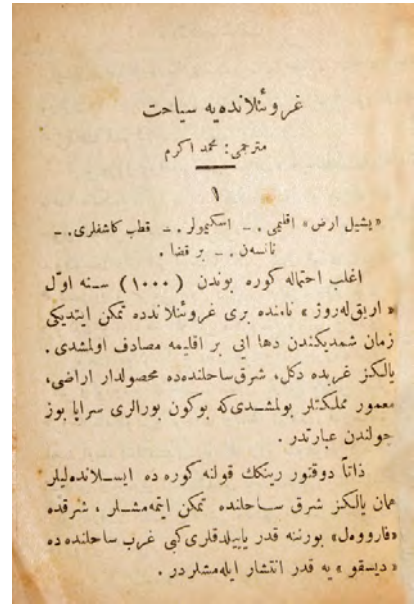 غروئنلانده‌یه سیاحت
مترجمی: محمد اکرم
۱
«یشیل ارض» اقلیمی . ـ اسکیمولر . ـ قطب کاشفلری . ـ
نانسه‌ن . ـ بر قضا .
اغلب احتماله کوره بوندن (۱۰۰۰) سنه اوّل
«اریق له‌روژ» نامنده بری غروئنلانده‌ تمکن ایتدیکی
زمان شمدیکندن دها ایی بر اقلیمه مصادف اولمشدی .
یالکز غربده دکل ، شرق ساحلنده‌ده محصولدار اراضی ،
معمور مملکتلر بولمشدی‌که بوکون بورالری سراپا بوز
جولندن عبارتدر .
ذاتاً دوقتور رینکك قولنه کوره ده ایسلانده‌لیلر
همان یالکز شرق ساحلنده تمکن ایتمه‌مشلر ، شرقده
«فاروول» بورننه قدر یاییلدقلری کبی غرب ساحلنده ده
«دیسقو» یه قدر انتشار ایله‌مشلردر .